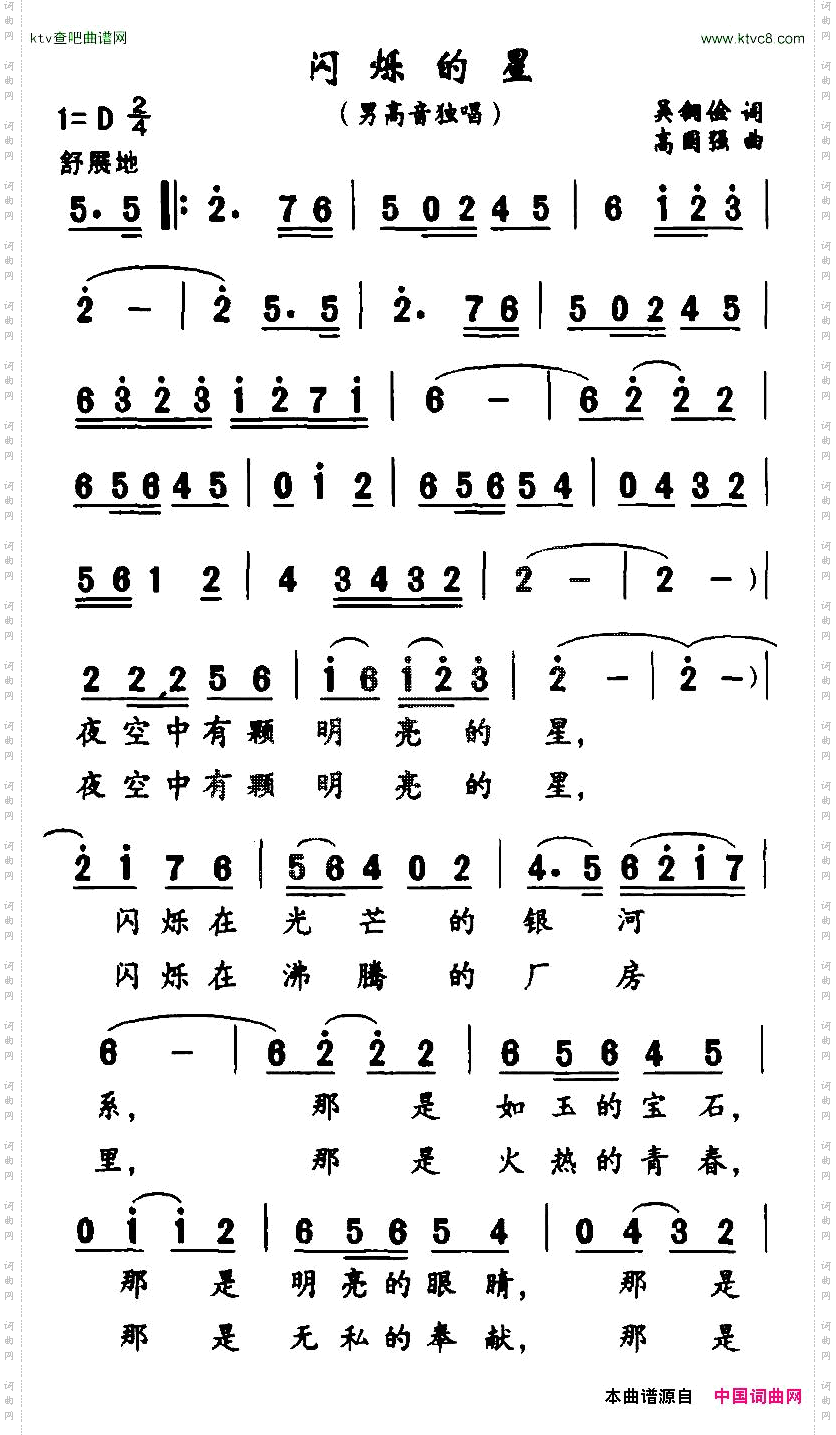 ktv查吧曲谱网
www.ktvc8.com
闪烁的星
1=D 2/4
（男高音独唱）
吴钢俭 词
高国强 曲
舒展地
5. 5 ‖: 2̇. 7 6 | 5 0 2 4 5 | 6 1̇ 2̇ 3̇ |
2̇ － | 2̇ 5. 5 | 2̇. 7 6 | 5 0 2 4 5 |
6 3̇ 2̇ 3̇ 1̇ 2̇ 7 1̇ | 6 － | 6 2̇ 2̇ 2 |
6 5 6 4 5 | 0 1̇ 2 | 6 5 6 5 4 | 0 4 3 2 |
5 6 1 2 | 4 3 4 3 2 | 2 － | 2 － ) |
2 2 2 5 6 | 1̇ 6 1̇ 2̇ 3̇ | 2̇ － | 2̇ － ) |
夜空中有颗明亮的星，
夜空中有颗明亮的星，
2̇ 1̇ 7 6 | 5 6 4 0 2 | 4. 5 6 2̇ 1̇ 7 |
闪烁在光芒的银河
闪烁在沸腾的厂房
6 － | 6 2̇ 2̇ 2 | 6 5 6 4 5 |
系，那是如玉的宝石，
里，那是火热的青春，
0 1̇ 1̇ 2 | 6 5 6 5 4 | 0 4 3 2 |
那是明亮的眼睛，那是
那是无私的奉献，那是
本曲谱源自 中国词曲网